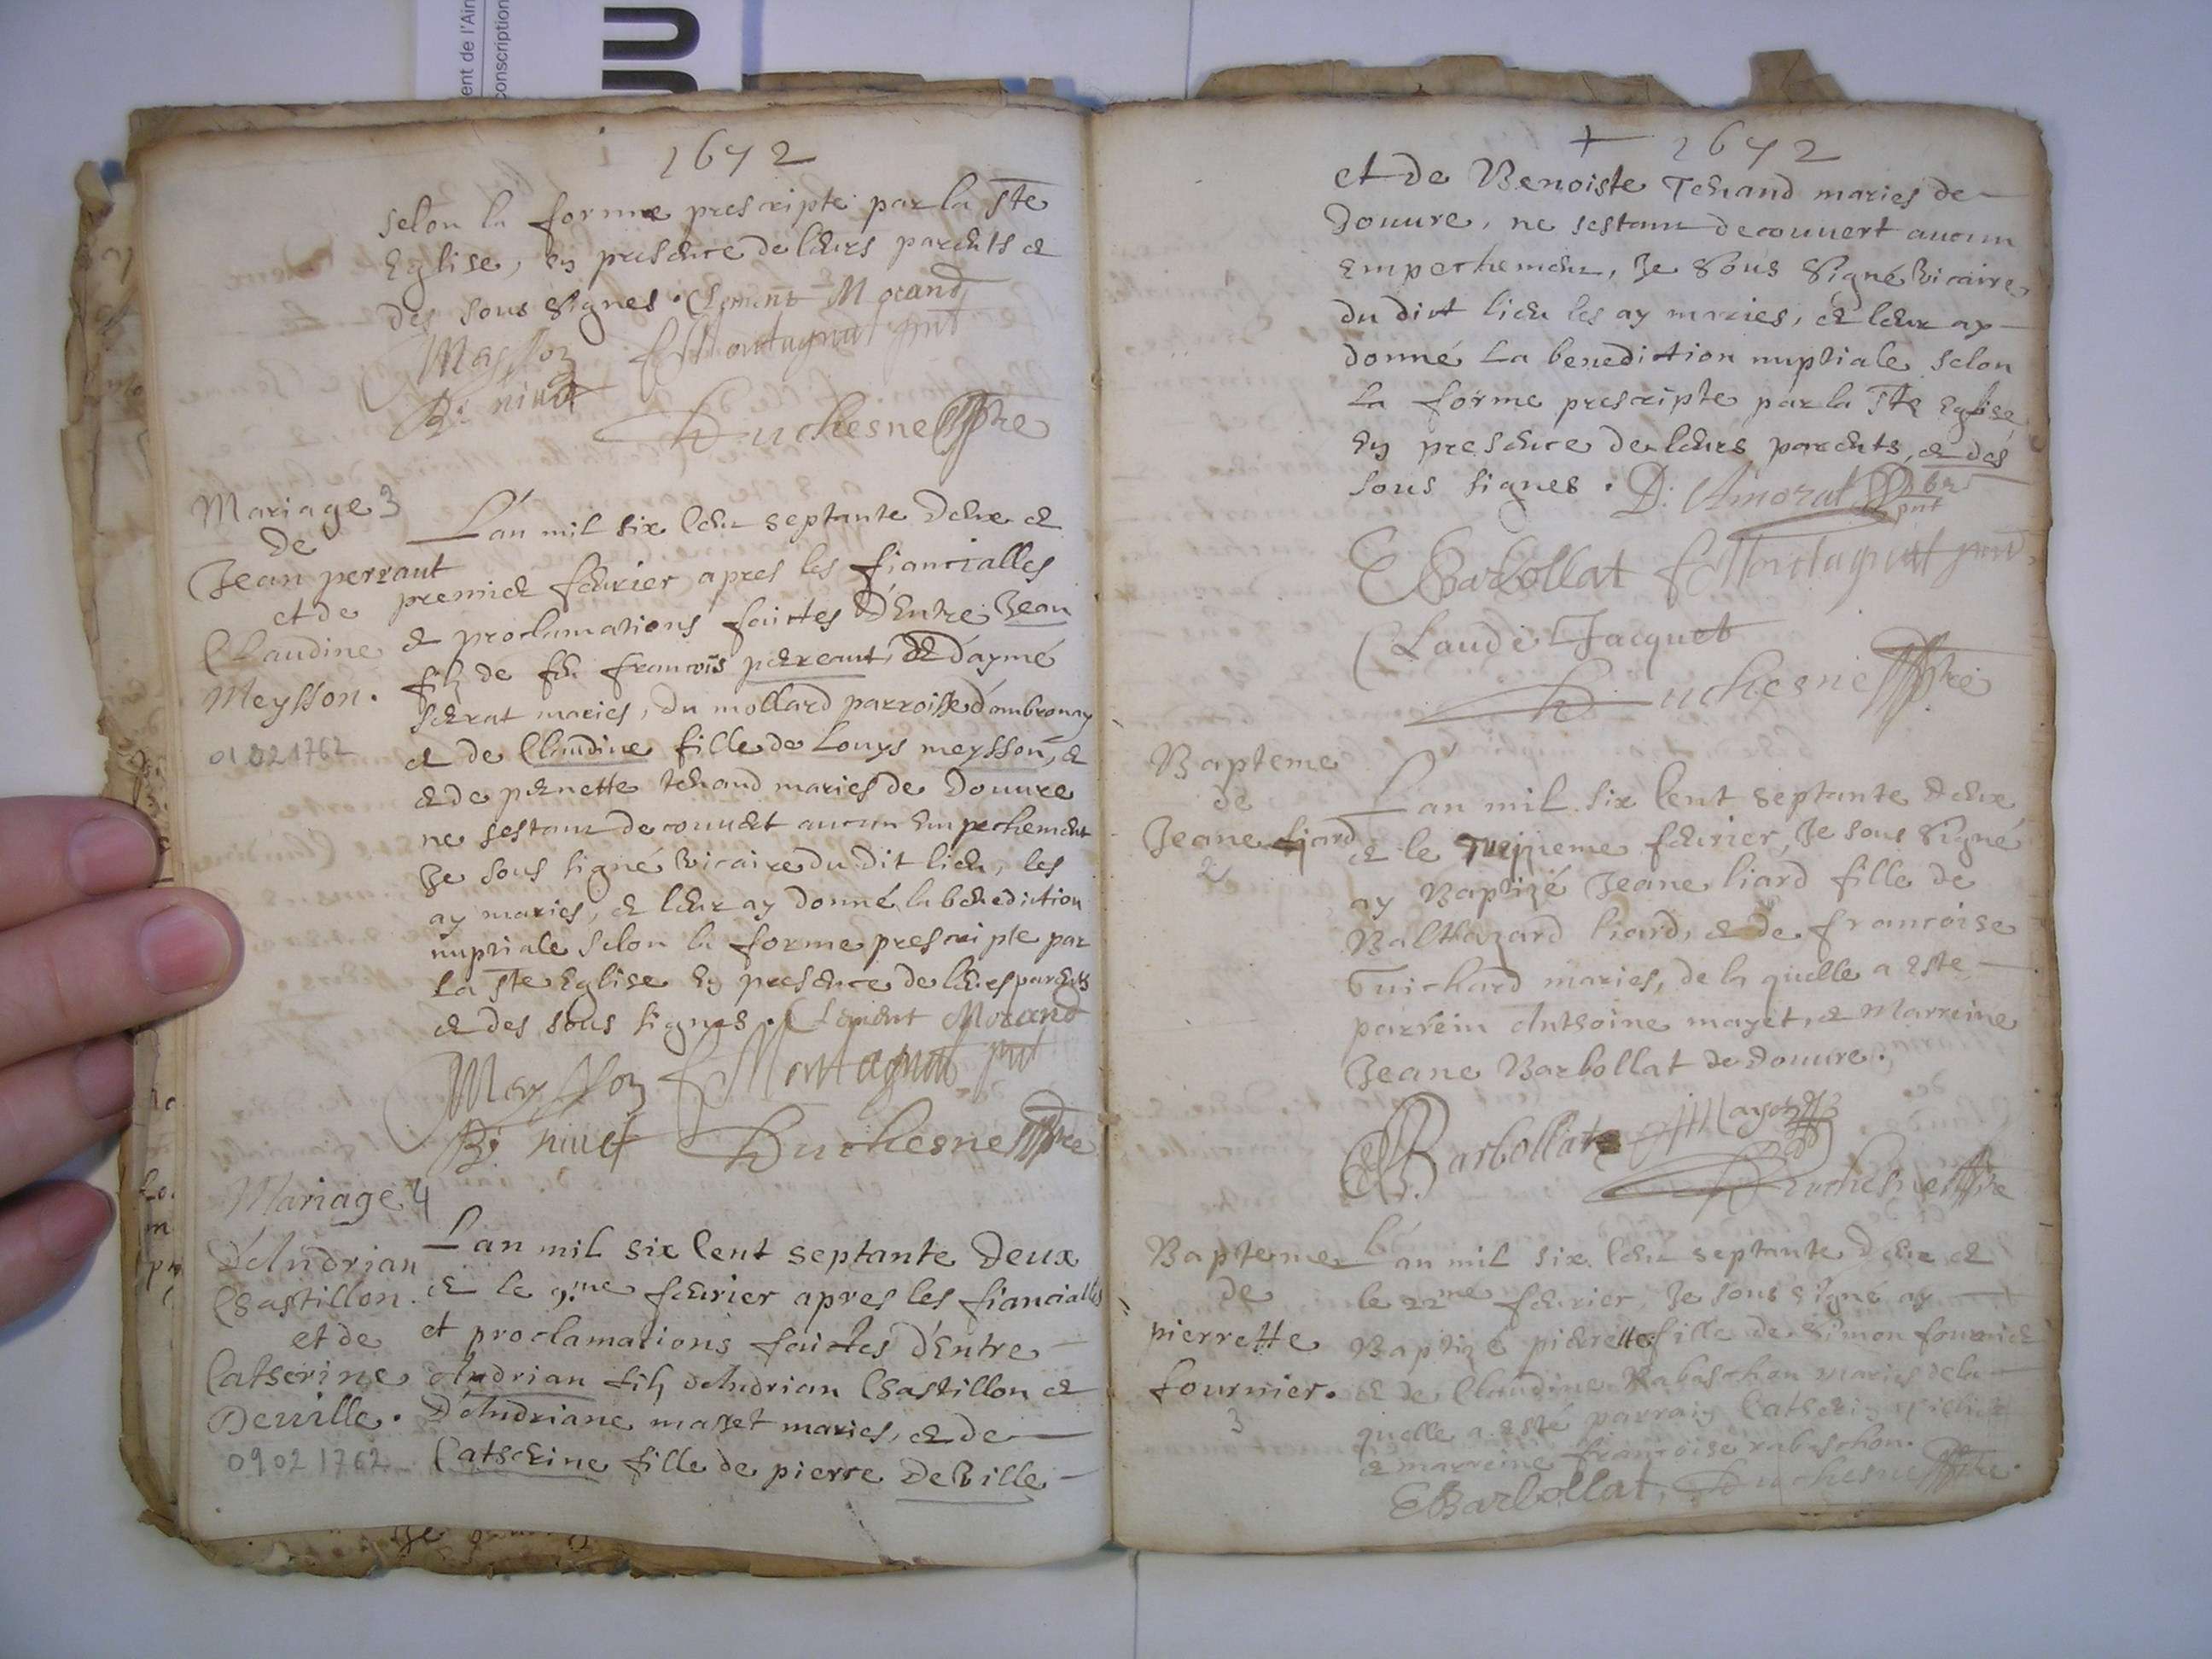 ent de l'Ain
conscription
1672
selon la forme prescripte par la Ste
Eglise, en presence de leurs parents et
des sous signes. Clement Morand
Meysson f Montagnat pnt
B. nivet
Duchesne ptre
Mariage 3
de
Jean perraut
et de
Claudine
Meysson.
01 02 1762
L'an mil six cent septante deux et
premier feuvrier apres les fiancialles
et proclamations faictes d'Entre Jean
filz de feu francois perraut, et d'aymé
serrat maries, du mollard parroisse d'ambronay
et de Claudine fille de Louys meysson, et
et de pernette tenand maries de Douure
ne sestant decouuert aucun empechement
Je sous signé vicaire du dit lieu, les
ay maries, et leur ay donné la benediction
nuptiale selon la forme prescripte par
La Ste Eglise en presence de leurs parents
et des sous signes. Clement Morand
Meysson f Montagnat pnt
B. nivet Duchesne ptre
Mariage 4
d'Andrian
Chastillon.
et de
Catherine
Deville.
09 02 1762
L'an mil six Cent septante Deux
et le 9.me feuvrier apres les fiancialles
et proclamations faictes d'Entre
Andrian filz d'Andrian Chastillon et
D'Andriane mayet maries, et de
Catherine fille de pierre DeVille
+ 1672
et de Benoiste Tenand maries de
Douure, ne sestant decouuert aucun
empechement, Je sous signé vicaire
du dict lieu les ay maries, et leur ay
donné La benediction nuptiale selon
La forme prescripte par la Ste Eglise
En presence de leurs parents, et des
sous signes. D. Amorat pbr
pnt
E Barbollat f Montagnat pnt
Claude Jacquet
Duchesne ptre
Bapteme
de
Jeane liard
2
L'an mil six Cent septante deux
et le feuvrier, Je sous signé
ay Baptizé Jeane liard fille de
Balthazard liard, et de francoise
Guichard maries, de la quelle a este
parrein Anthoine mayet, et Marreine
Jeane Barbollat de Douure.
E Barbollat A Mayet
Duchesne ptre
Bapteme
de
pierrette
fournier.
3
L'an mil six cent septante deux et
le 22me feuvrier, Je sous signé ay
Baptizé pierrette fille de Simon fournier
et de Claudine Rabaschon maries de la
quelle a esté parrain
et marreine francoise rabaschon.
E Barbollat, Duchesne ptre.